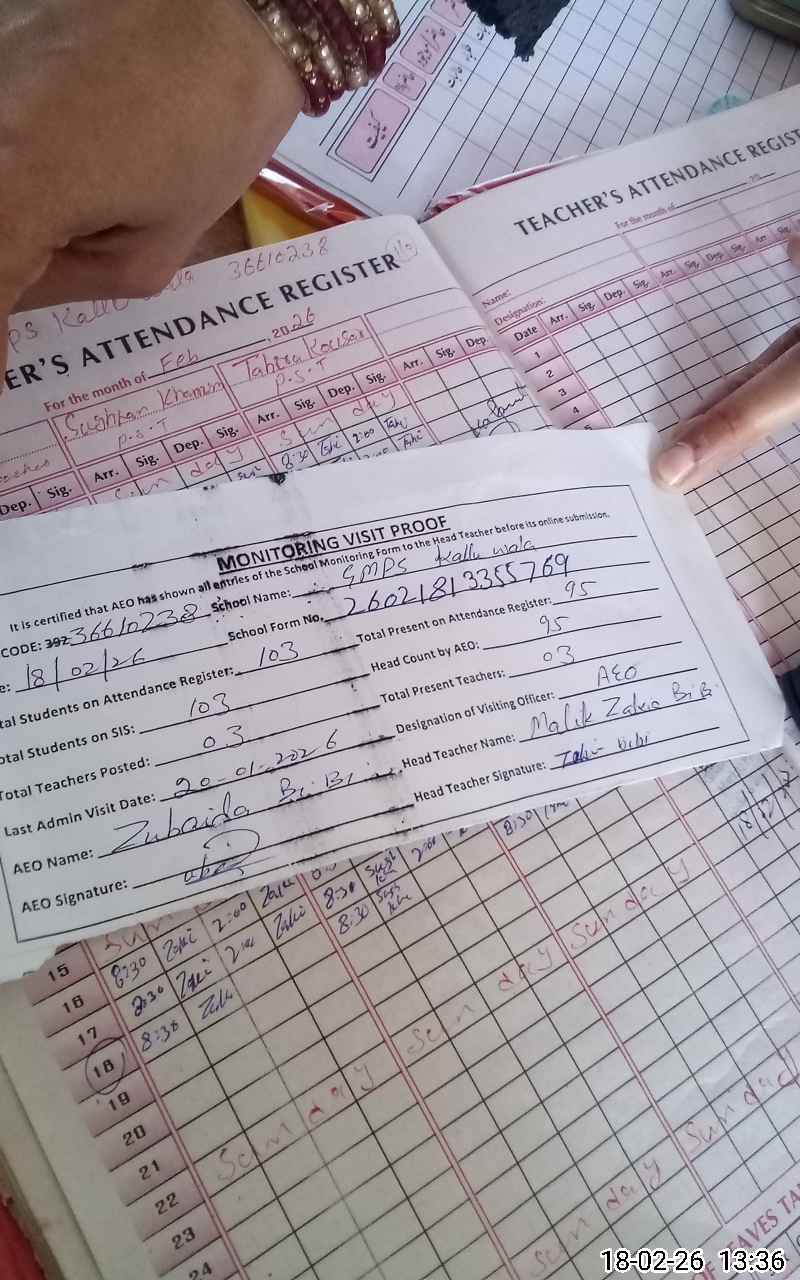 کیفیت
TEACHER'S ATTENDANCE REGIST
For the month of
Name:
Designation:
Date Arr. Sig. Dep. Sig. Arr. Sig. Dep. Sig. Arr. Sig.
1
2
3
4
PS Kallu wala 36610238
ER'S ATTENDANCE REGISTER
For the month of Feb, 2026
Tahira Kousar
P.S.T
P.S.T
Dep. Sig. Arr. Sig. Dep. Sig. Arr. Sig. Dep. Sig. Arr. Sig. Dep.
Sun day
Sun day
8:30 2:00
MONITORING VISIT PROOF
It is certified that AEO has shown all entries of the School Monitoring Form to the Head Teacher before its online submission.
CODE: 392 36610238 School Name: GMPS Kallu wala
e: 18/02/26 School Form No. 26021813355769
tal Students on Attendance Register: 103 Total Present on Attendance Register: 95
otal Students on SIS: 103 Head Count by AEO: 95
Total Teachers Posted: 03 Total Present Teachers: 03
Last Admin Visit Date: 20-01-2026 Designation of Visiting Officer: AEO
AEO Name: Zubaida BiBi Head Teacher Name: Malik Zakia BiBi
AEO Signature: Head Teacher Signature: Zakia bibi
15 Sun
16 8:30 Zaki 2:00 Zaki 8:30
17 8:30 Zaki 2:00 Zaki 8:30
18 8:30 Zaki
19
20
21
22 Sun day Sun day Sun day
23
24
Sun day Sunday
EAVES TA
18-02-26 13:36